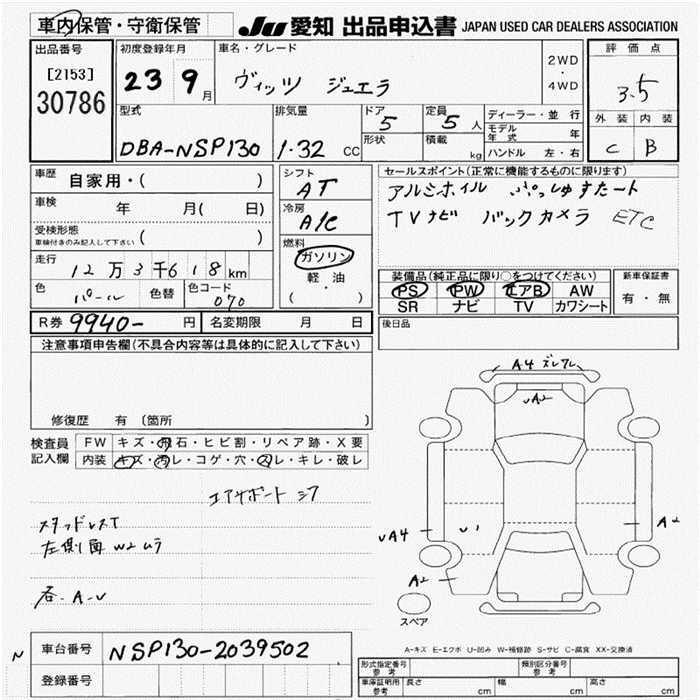 車内保管・守衛保管
JU 愛知 出品申込書 JAPAN USED CAR DEALERS ASSOCIATION
出品番号
[2153]
30786
初度登録年月
23 9月
車名・グレード
ヴィッツ ジュエラ
2WD
・
4WD
評価点
3.5
外装 内装
C B
型式
DBA-NSP130
排気量
1.32 CC
ドア
5
形状
定員
5人
積載
kg
ディーラー・並行
モデル年式 年
ハンドル 左・右
車歴
自家用・( )
車検 年 月( 日)
受検形態
車検付きのみ記入して下さい ( )
走行
12万3千618km
色
パール
色替
色コード
070
シフト
AT
冷房
A/C
燃料
ガソリン
軽・油
( ・ )
セールスポイント(正常に機能するものに限ります)
アルミホイル ぷっしゅすたート
TVナビ バックカメラ ETC
装備品(純正品に限り○をつけてください)
PS PW エアB AW
SR ナビ TV カワシート
新車保証書
有・無
R券 9940- 円
名変期限 月 日
後日品
注意事項申告欄(不具合内容等は具体的に記入して下さい)
修復歴 有 〔箇所 〕
検査員
記入欄
FW キズ・飛石・ヒビ割・リペア跡・X要
内装 キズ・汚レ・コゲ・穴・スレ・キレ・破レ
スタッドレスT
左側面 W2ムラ
各-A-U
A4 ズレワレ
UA2
UA4
U1
A2
A2
スペア
A-キズ E-エクボ U-凹み W-補修跡 S-サビ C-腐食 XX-交換済
N
車台番号
NSP130-2039502
登録番号
形式指定番号
参考
類別区分番号
参考
車庫証明用
参考
長さ cm
幅 cm
高さ cm